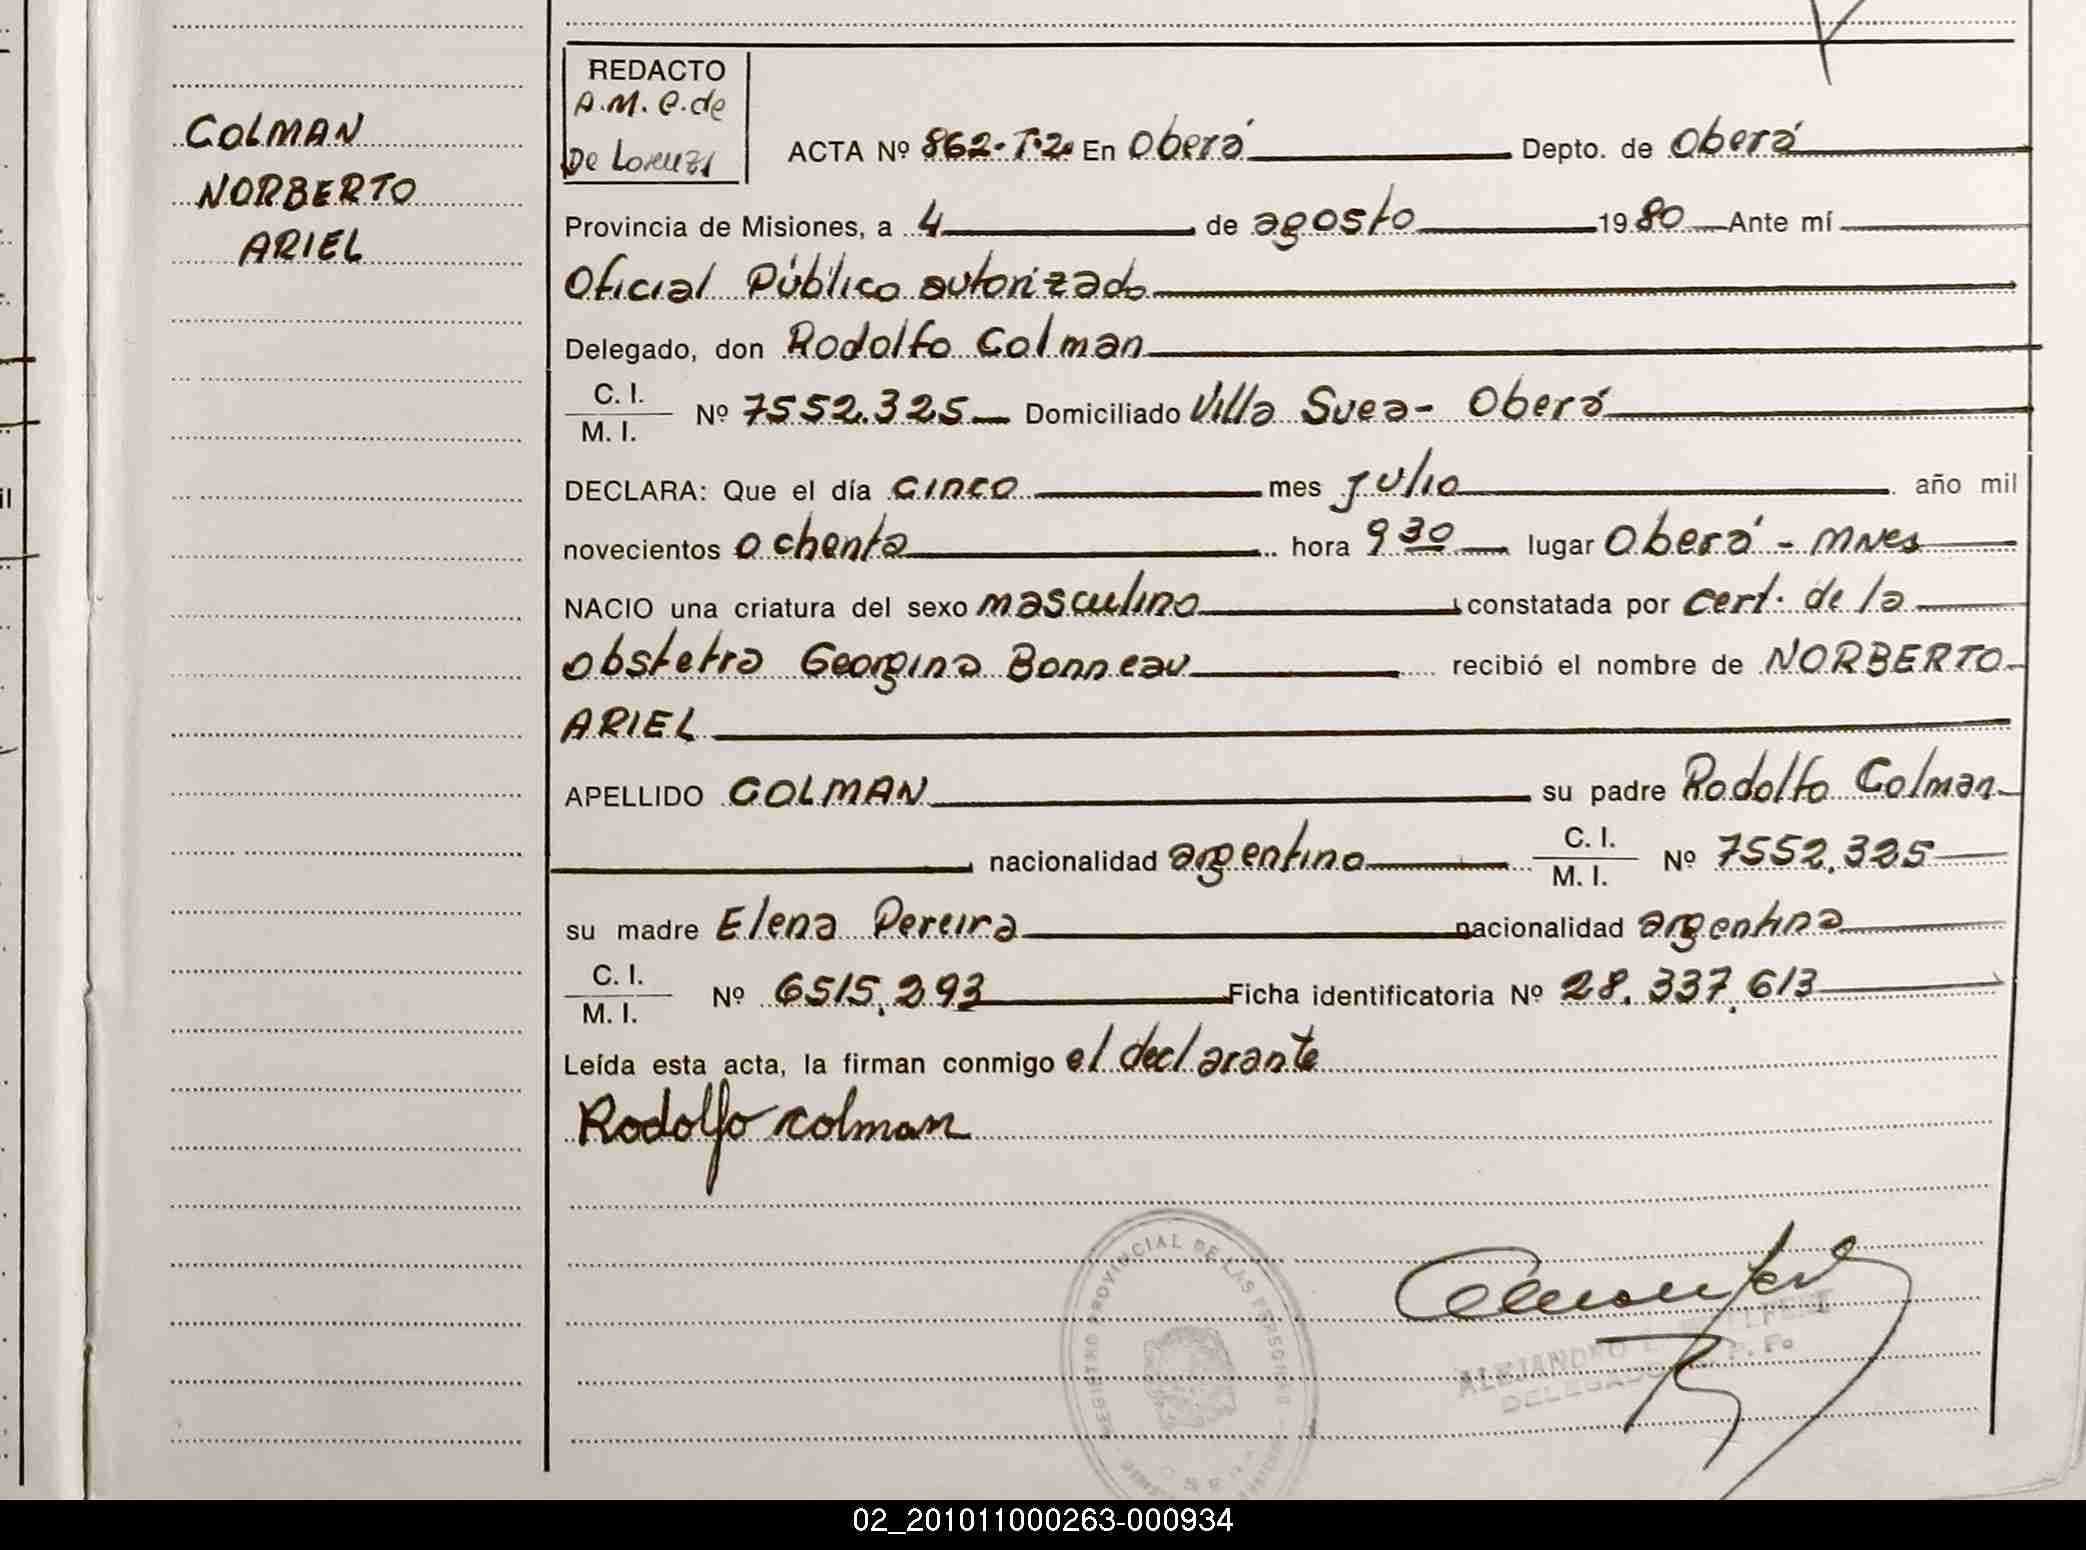 COLMAN
NORBERTO
ARIEL
REDACTO
A.M. C. de
De Lorenzi
ACTA Nº 862-T.2º En Oberá Depto. de Oberá
Provincia de Misiones, a 4 de agosto 1980 Ante mí
Oficial Público autorizado
Delegado, don Rodolfo Colman
C. I.
M. I. Nº 7552.325 Domiciliado Villa Svea - Oberá
DECLARA: Que el día cinco mes julio año mil
novecientos ochenta hora 9 30 lugar Oberá - Mnes
NACIO una criatura del sexo masculino constatada por cert. de la
obstetra Georgina Bonneau recibió el nombre de NORBERTO
ARIEL
APELLIDO COLMAN su padre Rodolfo Colman
nacionalidad argentino C. I.
M. I. Nº 7552.325
su madre Elena Pereira nacionalidad argentina
C. I.
M. I. Nº 6515.293 Ficha identificatoria Nº 28.337.613
Leída esta acta, la firman conmigo el declarante
Rodolfo Colman
REGISTRO PROVINCIAL DE LAS PERSONAS
ALEJANDRO
DELEGADO
02_201011000263-000934